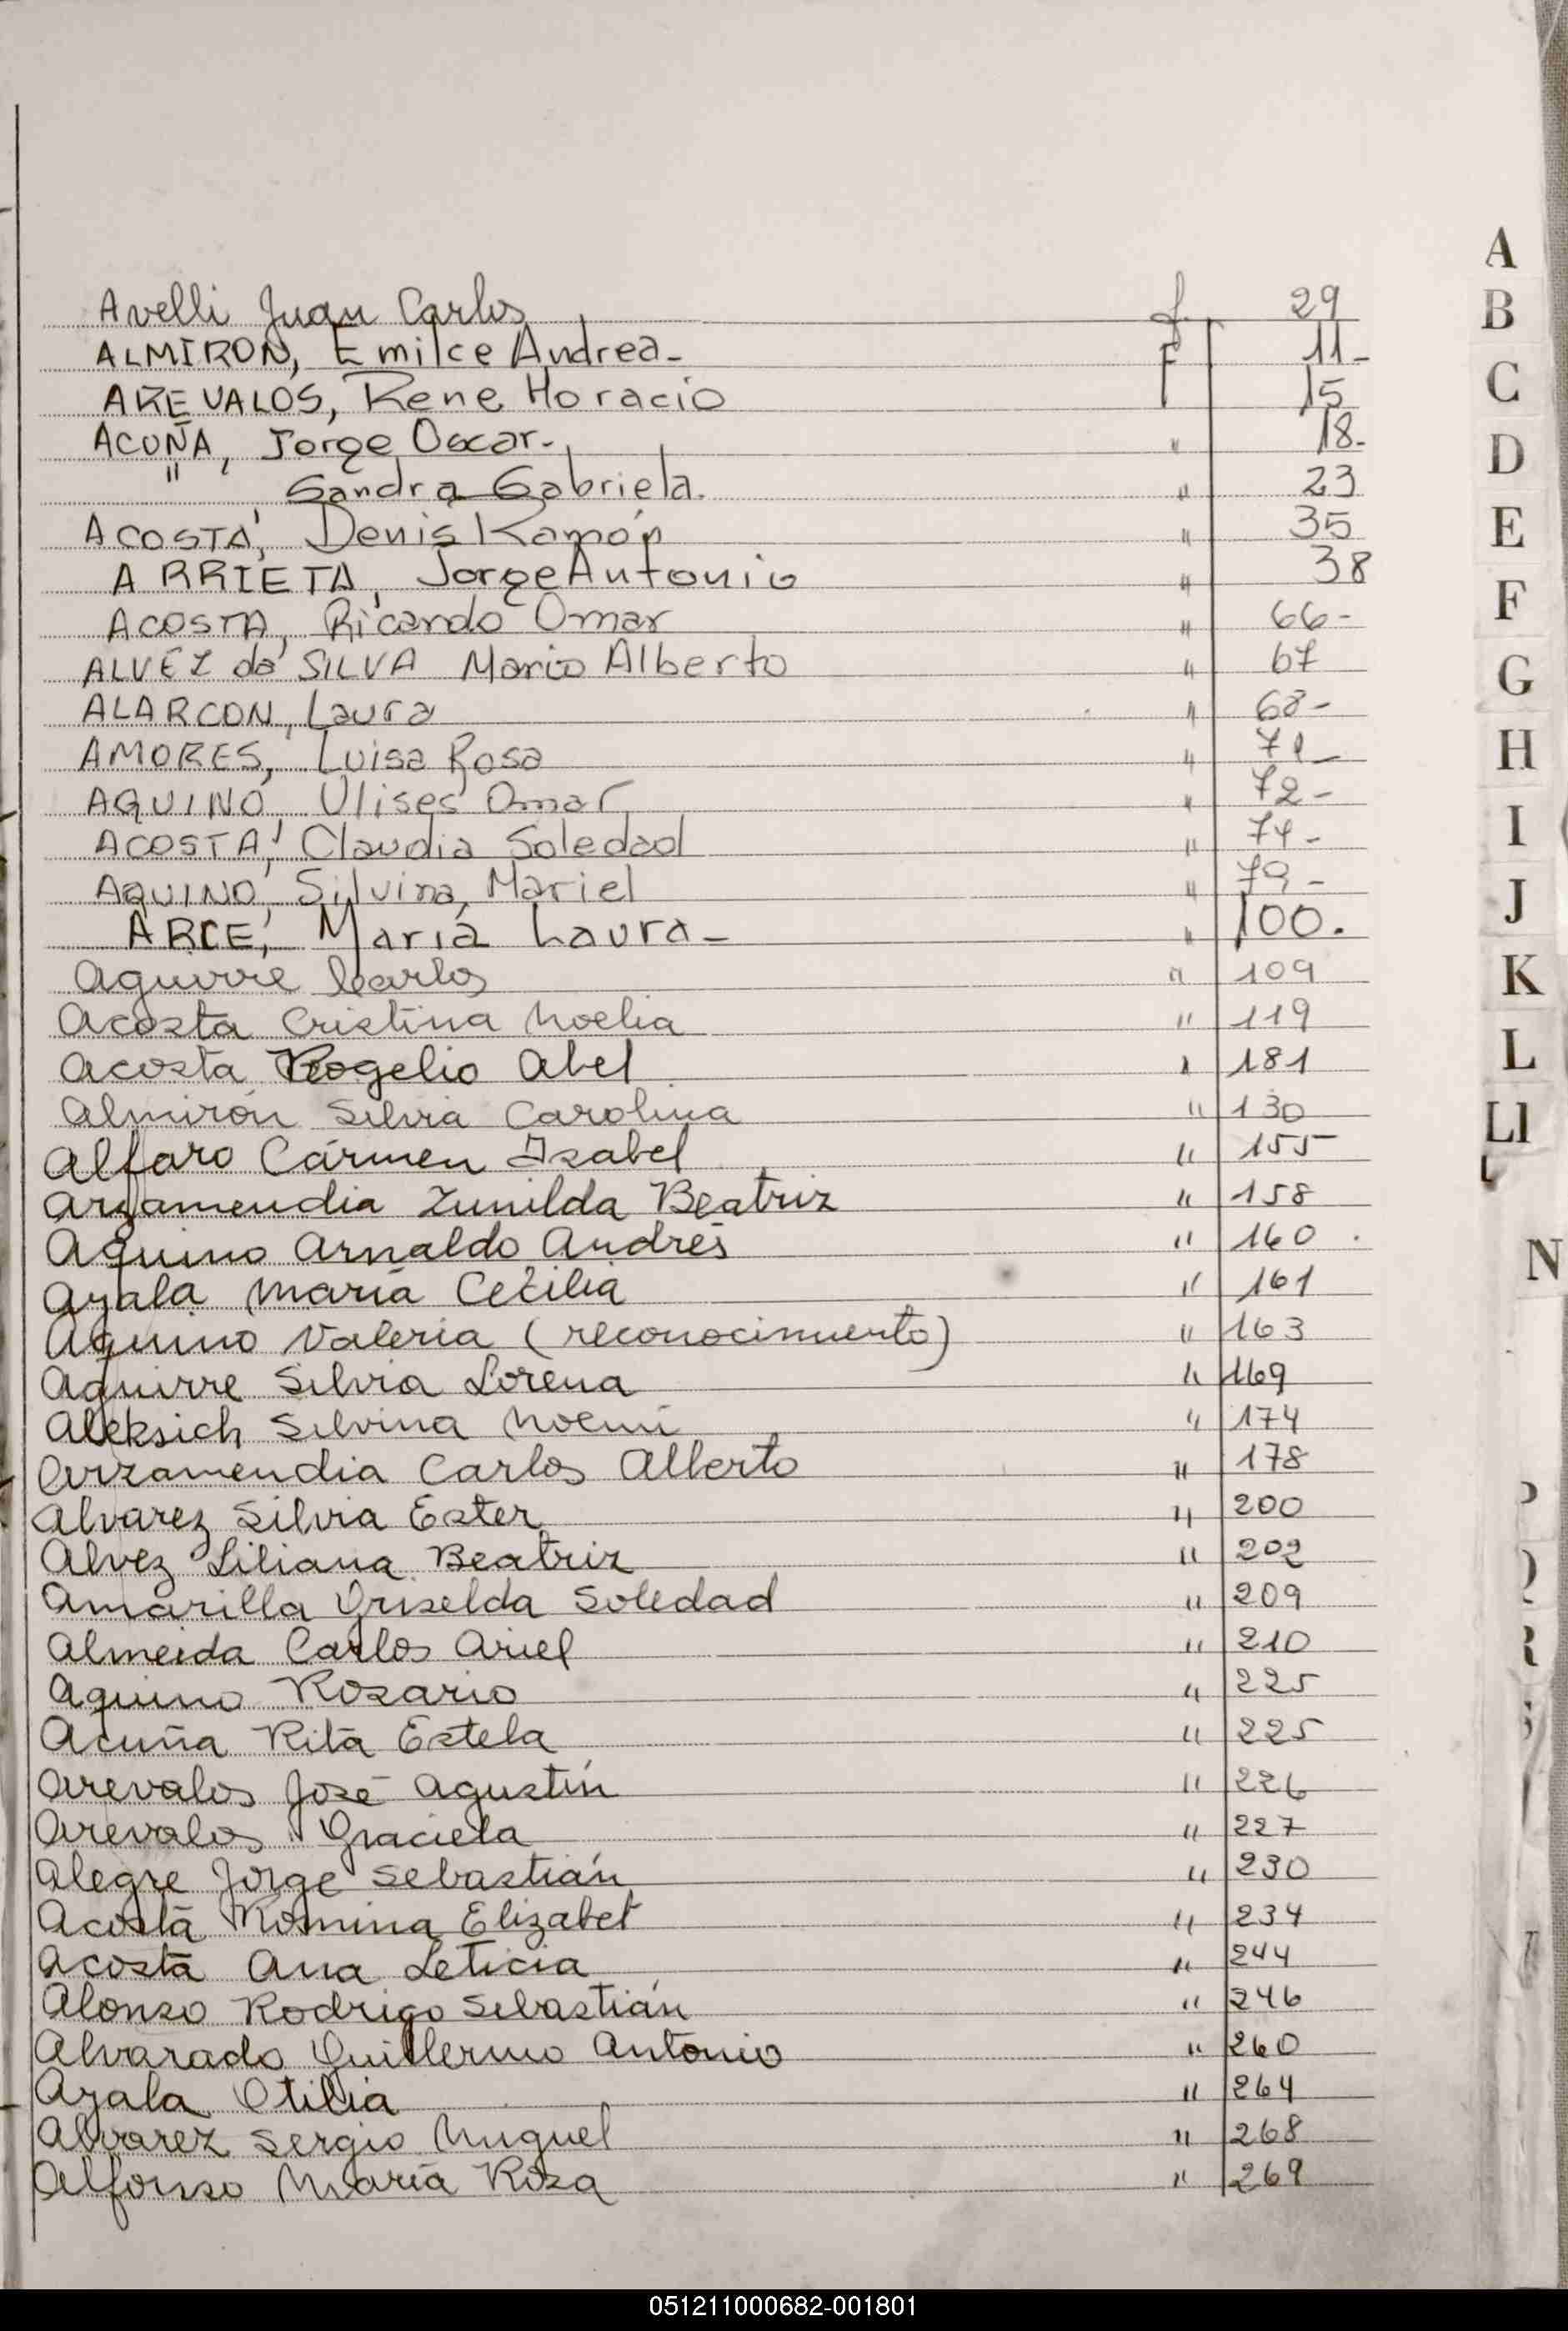 Avelli Juan Carlos f 29
ALMIRON, Emilce Andrea- F 11-
AREVALOS, Rene Horacio 15
ACUÑA, Jorge Oscar- " 18-
" , Sandra Gabriela. " 23
ACOSTA, Denis Ramón " 35
ARRIETA, Jorge Antonio " 38
ACOSTA, Ricardo Omar " 66-
ALVEZ da SILVA Mario Alberto " 67
ALARCON, Laura " 68-
AMORES, Luisa Rosa " 71-
AQUINO, Ulises Omar " 72-
ACOSTA, Claudia Soledad " 74-
AQUINO, Silvina Mariel " 79-
ARCE, María Laura- " 100.
Aguirre Carlos " 109
Acosta Cristina Noelia " 119
Acosta Rogelio Abel " 181
Almirón Silvia Carolina " 130
Alfaro Cármen Isabel " 155
Arzamendia Zunilda Beatriz " 158
Aquino Arnaldo Andrés " 160
Ayala María Cecilia " 161
Aquino Valeria (reconocimiento) " 163
Aguirre Silvia Lorena " 169
Aleksich Silvina Noemí " 174
Arzamendia Carlos Alberto " 178
Alvarez Silvia Ester " 200
Alvez Liliana Beatriz " 202
Amarilla Griselda Soledad " 209
Almeida Carlos Ariel " 210
Aquino Rosario " 225
Acuña Rita Estela " 225
Arevalos José Agustín " 226
Arevalos Graciela " 227
Alegre Jorge Sebastián " 230
Acosta Romina Elizabet " 234
Acosta Ana Leticia " 244
Alonso Rodrigo Sebastián " 246
Alvarado Guillermo Antonio " 260
Ayala Otilia " 264
Alvarez Sergio Miguel " 268
Alfonso María Rosa " 269
A
B
C
D
E
F
G
H
I
J
K
L
Ll
N
051211000682-001801